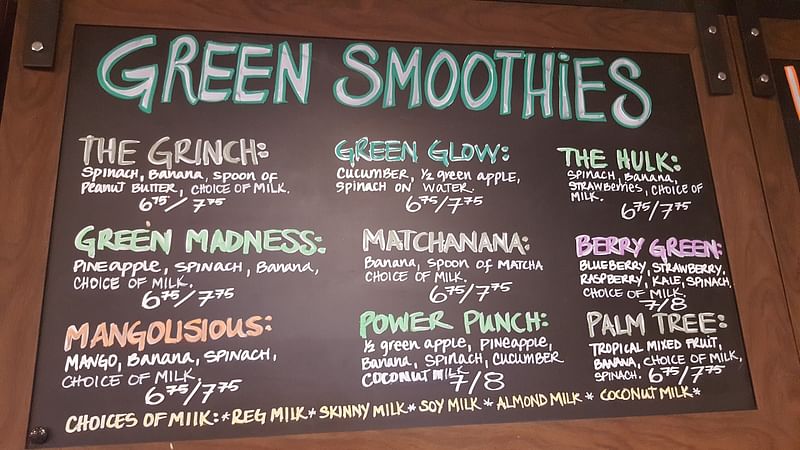 GREEN SMOOTHiES
THE GRINCH:
SPINACH, BANANA, SPOON OF
PEANUT BUTTER, CHOICE OF MILK.
6⁷⁵/7⁷⁵
GREEN GLOW:
CUCUMBER, ½ green apple,
SPINACH ON WATER.
6⁷⁵/7⁷⁵
THE HULK:
SPINACH, BANANA,
STRAWBERRIES, CHOICE OF
MILK.
6⁷⁵/7⁷⁵
GREEN MADNESS:
PINEAPPLE, SPINACH, BANANA,
CHOICE OF MILK.
6⁷⁵/7⁷⁵
MATCHANANA:
BANANA, SPOON OF MATCHA
CHOICE OF MILK.
6⁷⁵/7⁷⁵
BERRY GREEN:
BLUEBERRY, STRAWBERRY,
RASPBERRY, KALE, SPINACH,
CHOICE OF MILK
7/8
MANGOLISIOUS:
MANGO, BANANA, SPINACH,
CHOICE OF MILK.
6⁷⁵/7⁷⁵
POWER PUNCH:
½ green apple, PINEAPPLE,
BANANA, SPINACH, CUCUMBER
COCONUT MILK
7/8
PALM TREE:
TROPICAL MIXED FRUIT,
BANANA, CHOICE OF MILK,
SPINACH. 6⁷⁵/7⁷⁵
CHOICES OF MIlK: *REG MILK* SKINNY MILK* SOY MILK* ALMOND MILK* COCONUT MILK*